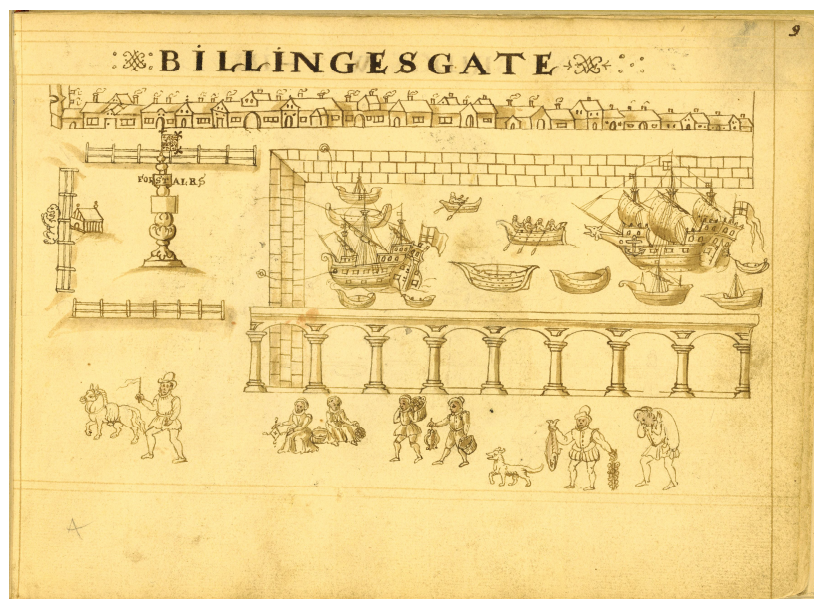 9
BILLINGESGATE
FORSTALRS
A